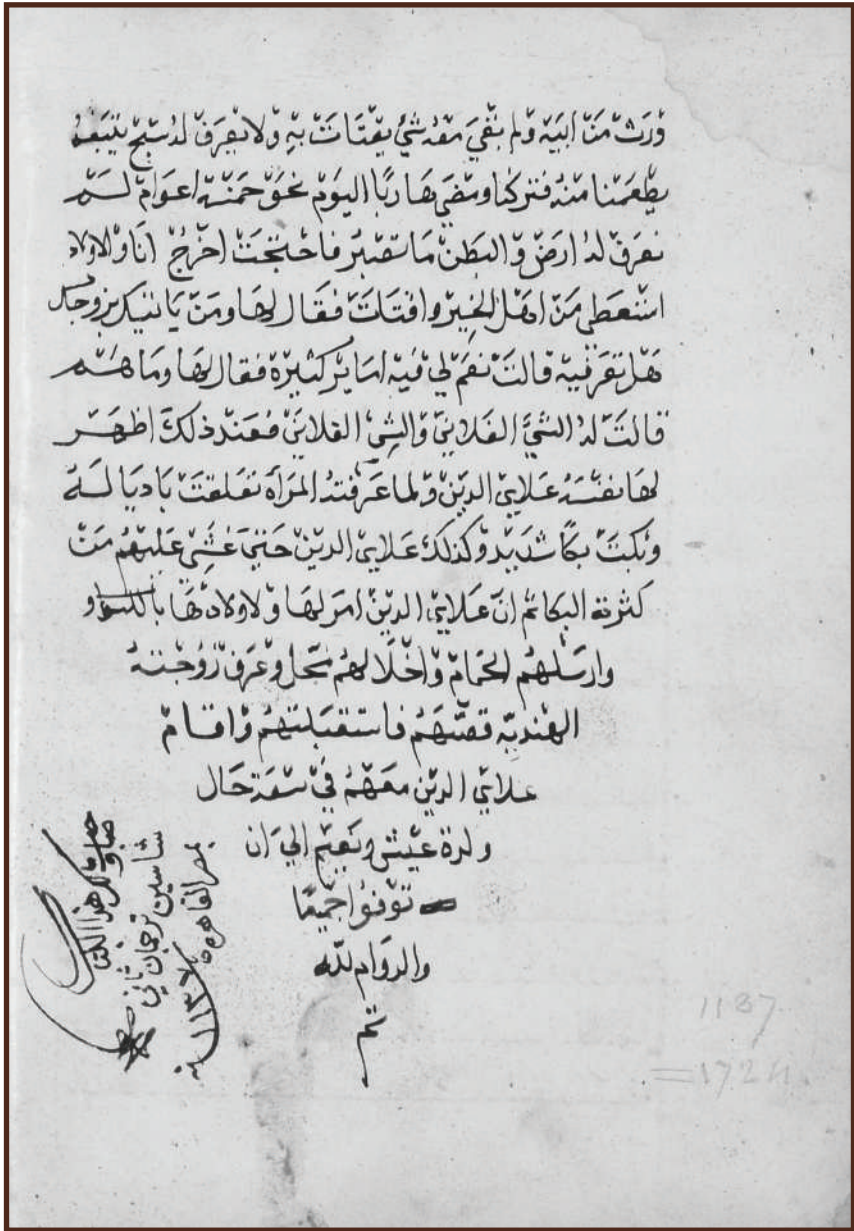 ورث من ابيه ولم بقي معه شيءُ يقتات به ولا يعرف له سبح يتبعه
يطعمنا منه فتركنا ومضي هاربا اليوم نحو خمسة اعوام لم
نعرف له ارض والبطن ما تصبر فاحتجت اخرج انا والاولاد
استعطي من اهل الخير واقتات فقال لها ومن يأتيكي بزوجك
هل تعرفيه قالت نعم لي فيه اماير كثيرة فقال لها وما هم
قالت له الشي الفلاني والشي الفلاني فعند ذلك اظهر
لها نفسه علاي الدين ولما عرفته المراه تعلقت باديا له
وبكت بكا شديد وكذلك علاي الدين حتي غشي عليهم من
كثرة البكا ثم ان علاي الدين امر لها ولاولادها بالكسوه
وارسلهم الحمام واخلا لهم محل وعرف زوجته
الهنديه قصتهم فاستقبلتهم واقام
علاي الدين معهم في سعة حال
ولذة عيش ونعيم الي ان
توفوا جميعا
والدوام لله
تم
صاحب ومالك هذا الكتاب
شاسين ترجمان ثاني
بمصر القاهره
سنه ١١٣٧
1137
=1724